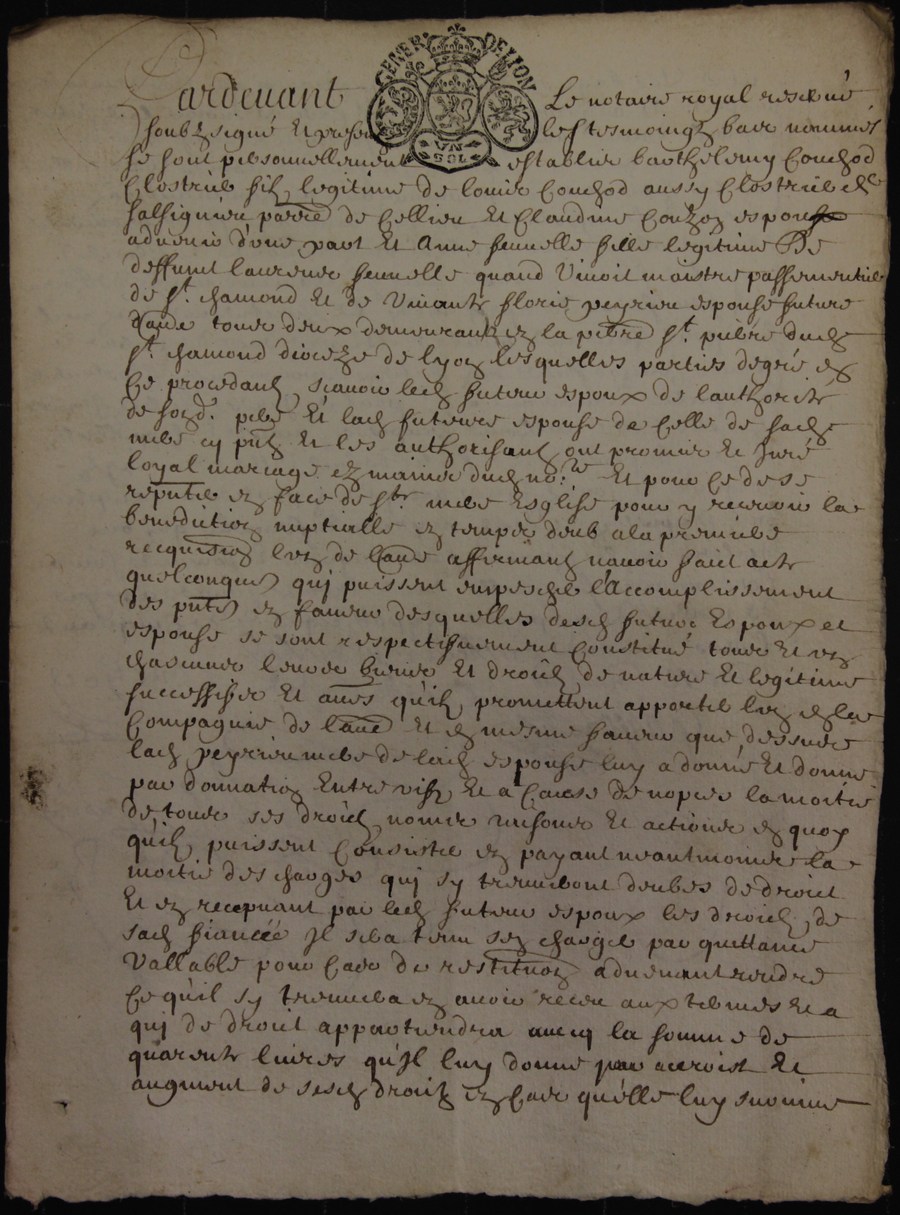 GENER. DE LION
VN SOL
Pardeuant Le notaire royal reserué
soubzsigné Et presen les tesmoingz bas nommés
se sont personnellement establis barthelemy Couchod
Clostrier filz legitime de Couchod aussy Clostrier de
parre de Cellieu Et Claudine espouse
aduenir d'une part Et Anne fille legitime De
deffunt laurens quand Viuoit maistre passementier
de St. chamond Et de Viuante florie peyrieu espouse future
d'autre tous deux demeurantz en la parre St. pierre dud
St. chamond dioceze de lyon lesquelles parties de gré en
Ce procedant, sçauoir led futur espoux de l'authorité
de sond. pere Et lad future espouse de Celle de sad
mere cy pnt Et les authorisant ont promis Et Juré
loyal mariage ez mains dud nore. Et pour Ce de se
en face de Ste. mere Esglise pour y receuoir la
benediction nuptialle en temps deub a la premiere
requisition l'un de l'autre affirmant n'auoir faict acte
quelconques qui puissent empescher l'Accomplissement
des pntes en faueur desquelles desd futurs Espoux et
espouse se sont respectiuement Constitué tous Et un
chascuns leurs biens Et droictz de nature Et legitime
succession Et aues qu'ilz promettent apporter l'un en la
Compagnie de l'autre Et en mesme faueur que dessus
lad peyrieu mere de lad espouse luy a donné Et donne
par donnation Entre vifz Et a Cause de nopces la moitié
de tous ses droictz noms raisons Et actions en quoy
qu'ilz puissent Consister en payant neantmoings la
moitié des charges qui sy treuueront deubes de droict
Et en receuant par led futur espoux les droictz de
sad fiancée Il sera tenu s'en charger par quittance
Vallable pour Cas de restitution aduenant rendre
Ce qu'il sy treuuera en auoir receu aux termes Et a
qui de droit appartiendra auecq la somme de
quarente liures qu'Il luy donne par acroist Et
augment de sesd droictz en Cas qu'elle luy suruiue